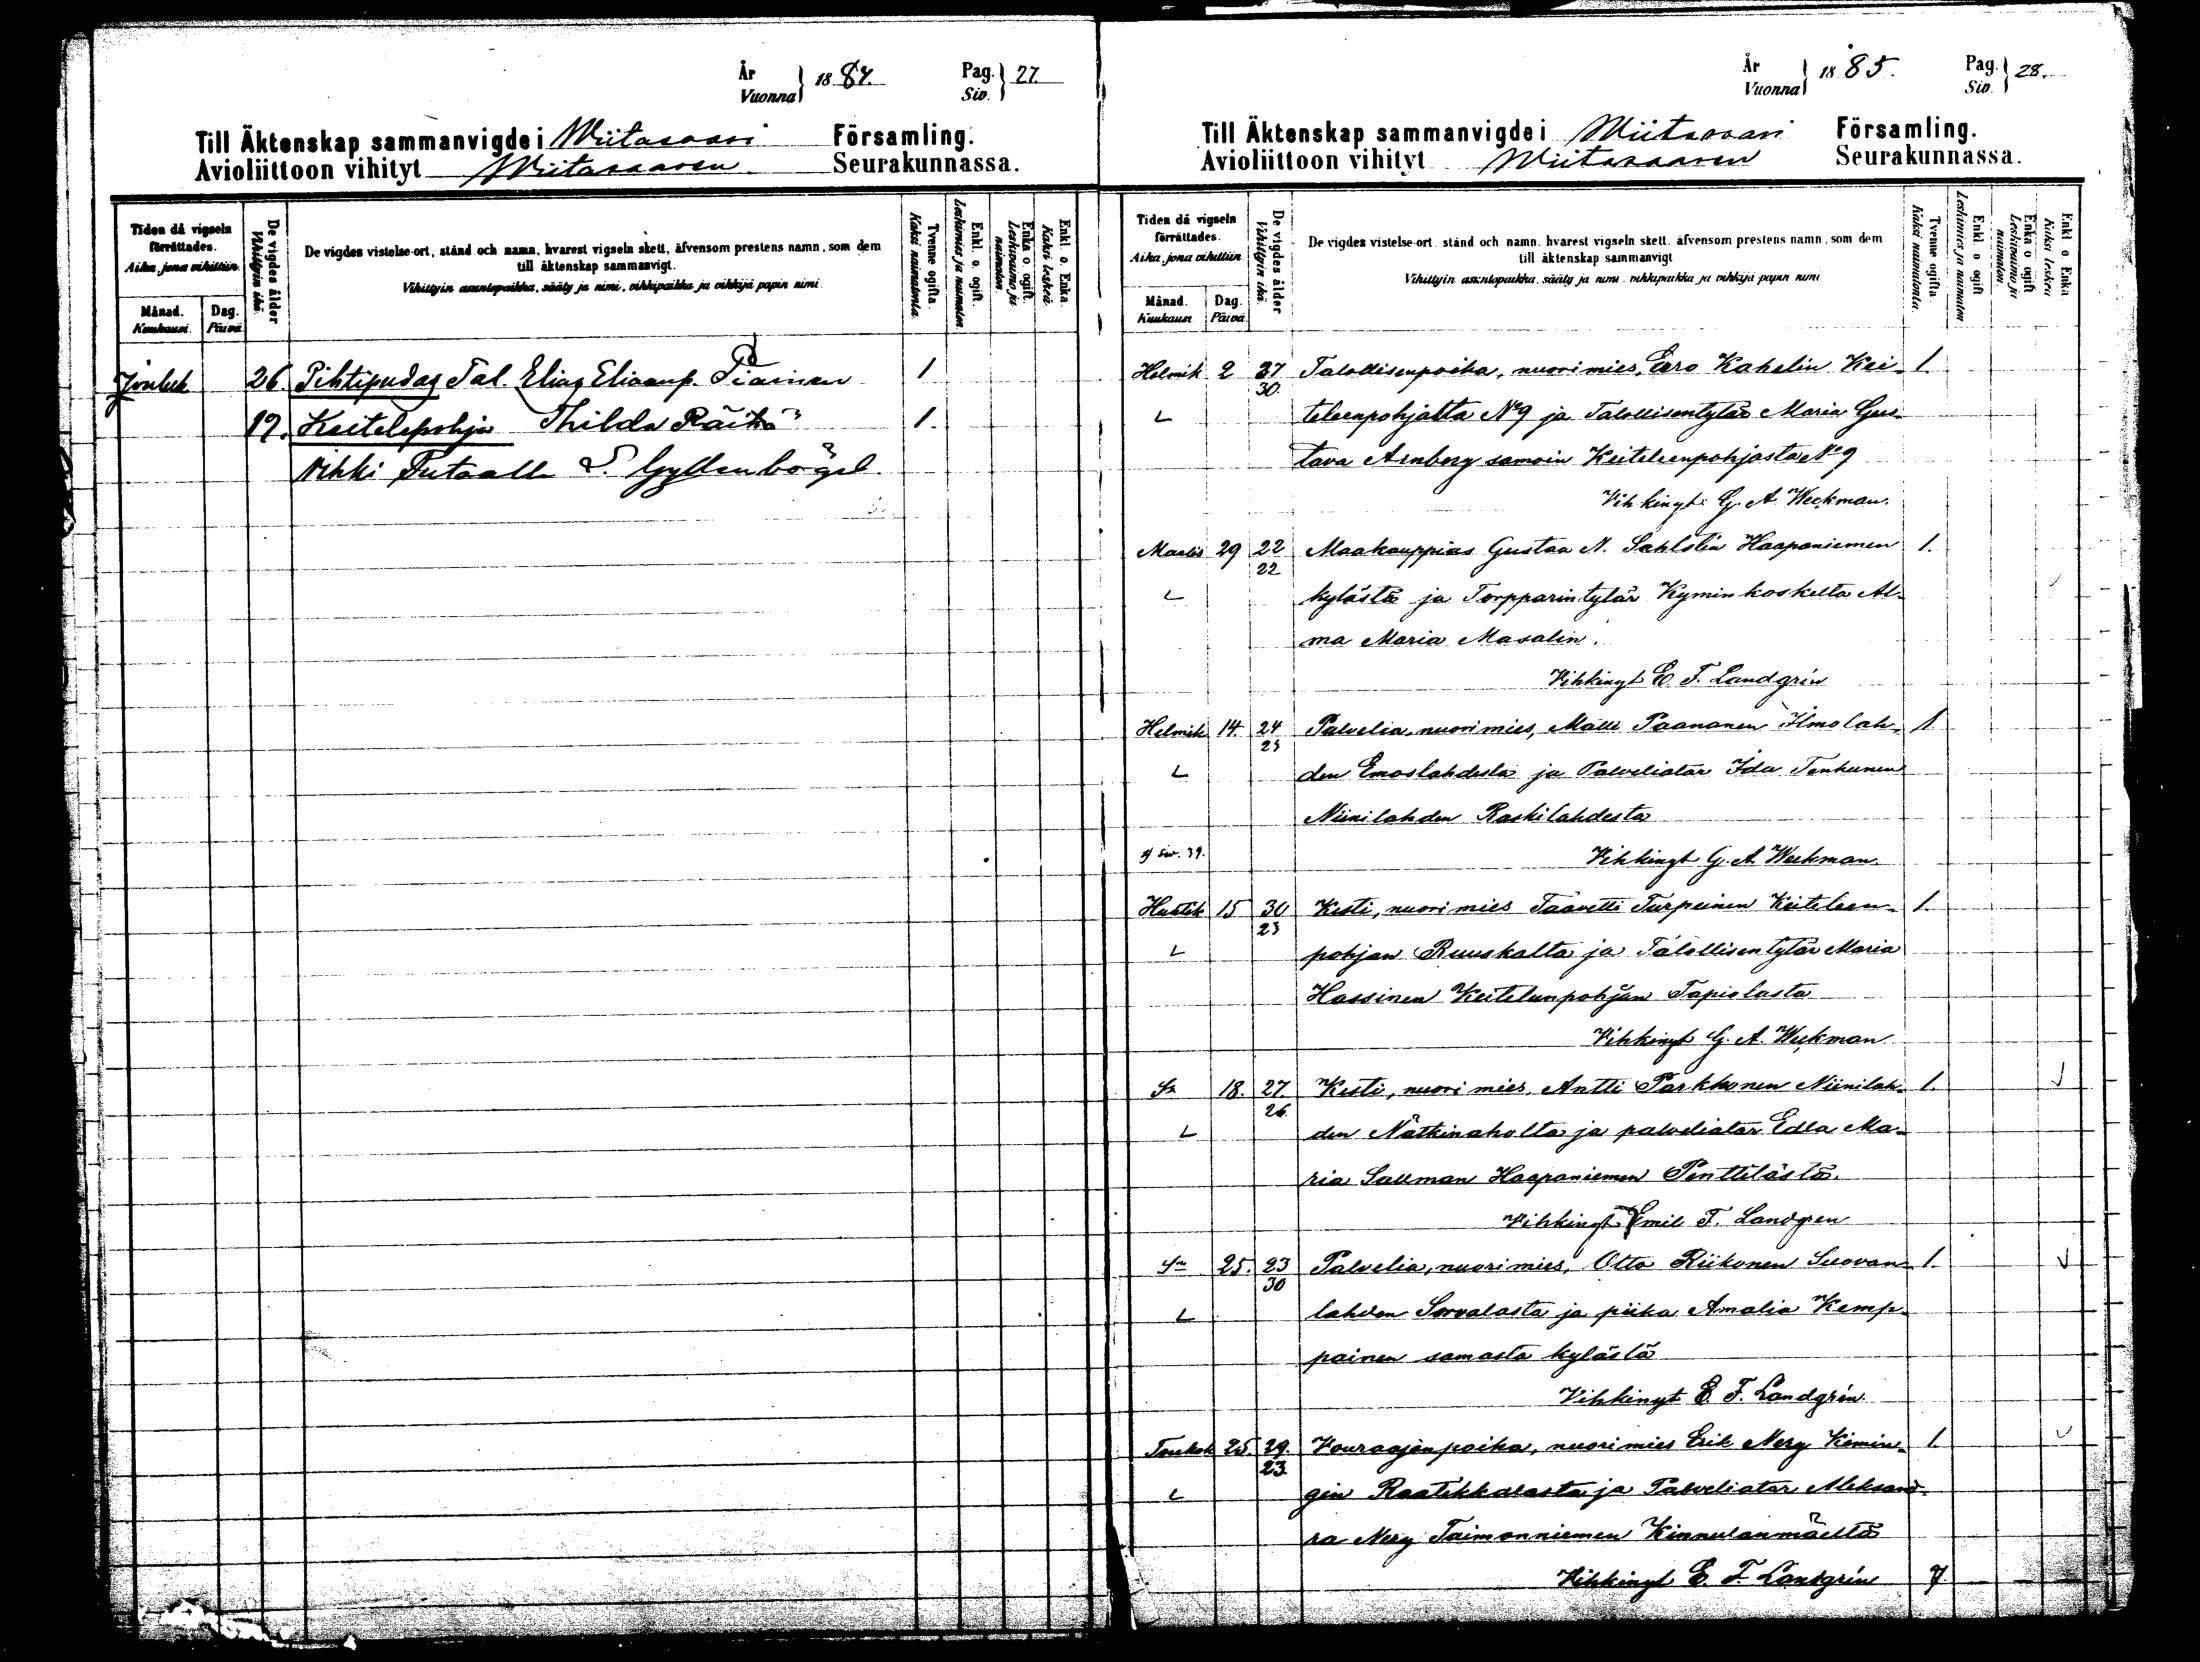 År Vuonna 1884. Pag. Siv. 27.
Till Äktenskap sammanvigde i Wiitasaari Församling.
Avioliittoon vihityt Wiitasaaren Seurakunnassa.
Tiden då vigseln förrättades.
Aika, jona vihittiin.
Månad. Kuukausi.
Dag. Päivä
De vigdes ålder
Vihittyin ikä.
De vigdes vistelse-ort, stånd och namn, hvarest vigseln skett, äfvensom prestens namn, som dem
till äktenskap sammanvigt.
Vihittyin asuntopaikka, sääty ja nimi, vihkipaikka ja vihkijä papin nimi
Tvenne ogifta.
Kaksi naimatonta.
Enkl. o. ogift.
Leskimies ja naimaton
Enka o. ogift.
Leskivaimo ja naimaton.
Enkl. o. Enka.
Kaksi leskeä.
Jouluk 26 Pihtipudas Tal. Elias Eliaanp. Piainen 1
19. Keitelepohja Thilda Räihä 1.
Vihki L. Gyllenbögel.
År Vuonna 1885. Pag. Siv. 28.
Till Äktenskap sammanvigde i Wiitasaari Församling.
Avioliittoon vihityt Wiitasaaren Seurakunnassa.
Tiden då vigseln förrättades.
Aika, jona vihittiin
Månad. Kuukausi
Dag. Päivä
De vigdes ålder
Vihittyin ikä.
De vigdes vistelse-ort. stånd och namn. hvarest vigseln skett. äfvensom prestens namn, som dem
till äktenskap sammanvigt
Vihittyin asuntopaikka, sääty ja nimi vihkipaikka ja vihkijä papin nimi
Tvenne ogifta.
Kaksi naimatonta.
Enkl o ogift
Leskimies ja naimaton
Enka o ogift
Leskivaimo ja naimaton.
Enkl o. Enka
Kaksi leskeä
Helmik 2 37 Talollisenpoika, nuorimies, Eero Kahelin Kei- 1.
30.
teleenpohjalta No 9 ja Talollisentytär Maria Gus-
tava Arnberg samoin Keiteleenpohjasta No 9
Vihkinyt G. A. Weckman.
Maalis 29 22 Maakauppias Gustaa A. Sahlstén Haapaniemen 1.
22
kylästä ja Torpparintytär Kyminkoskelta Al-
ma Maria Masalin.
Vihkinyt E. F. Landgrén
Helmik 14. 24 Palvelia, nuorimies, Matti Paananen Ilmolah- 1
23
den Emoslahdesta ja Palveliatar Ida Tenhunen
Niinilahden Raskilahdesta
siv. 39.
Vihkinyt G. A. Weckman.
Huhtik 15 30 Kesti, nuorimies Taavetti Turpeinen Keiteleen- 1.
23
pohjan Ruuskalta ja Talollisentytär Maria
Hassinen Keiteleenpohjan Tapiolasta
Vihkinyt G. A. Weckman
Sa 18. 27. Kesti, nuorimies, Antti Parkkonen Niinilah- 1.
26.
den Nätkinaholta ja palveliatar Edla Ma-
ria Sallman Haapaniemen Penttilästä.
Vihkinyt Emil F. Landgren
Sa 25. 23 Palvelia, nuorimies, Otto Riikonen Suovan- 1.
30
lahden Sorvalasta ja piika Amalia Kemp-
painen samasta kylästä
Vihkinyt E. F. Landgrén.
Toukok 25. 29. Vouraajanpoika, nuorimies Erik Nery Kimin- 1.
23.
gin Raatikkalasta ja Palveliatar Aleksand-
ra Nery Taimonniemen Kinnulanmäeltä
Vihkinyt E. F. Landgrén 7